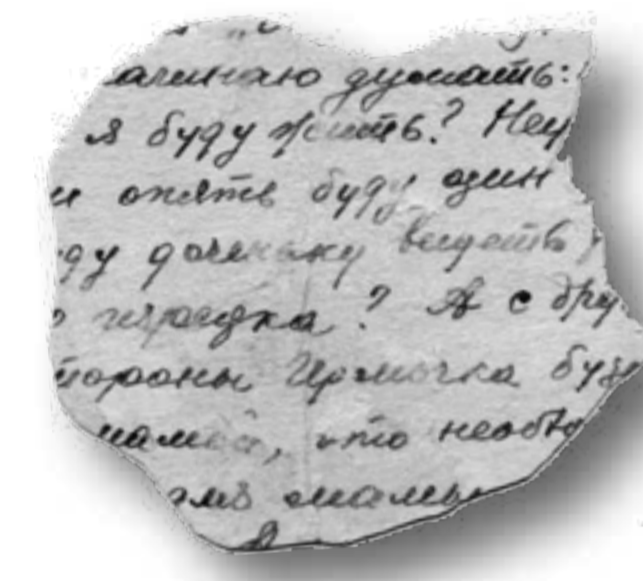 ачинаю думать:
я буду жить? Неу
и опять буду один
ду доченьку видеть
изредка? А с дру
тороны Ирмочка буде
мамой, это необхо
для мамы